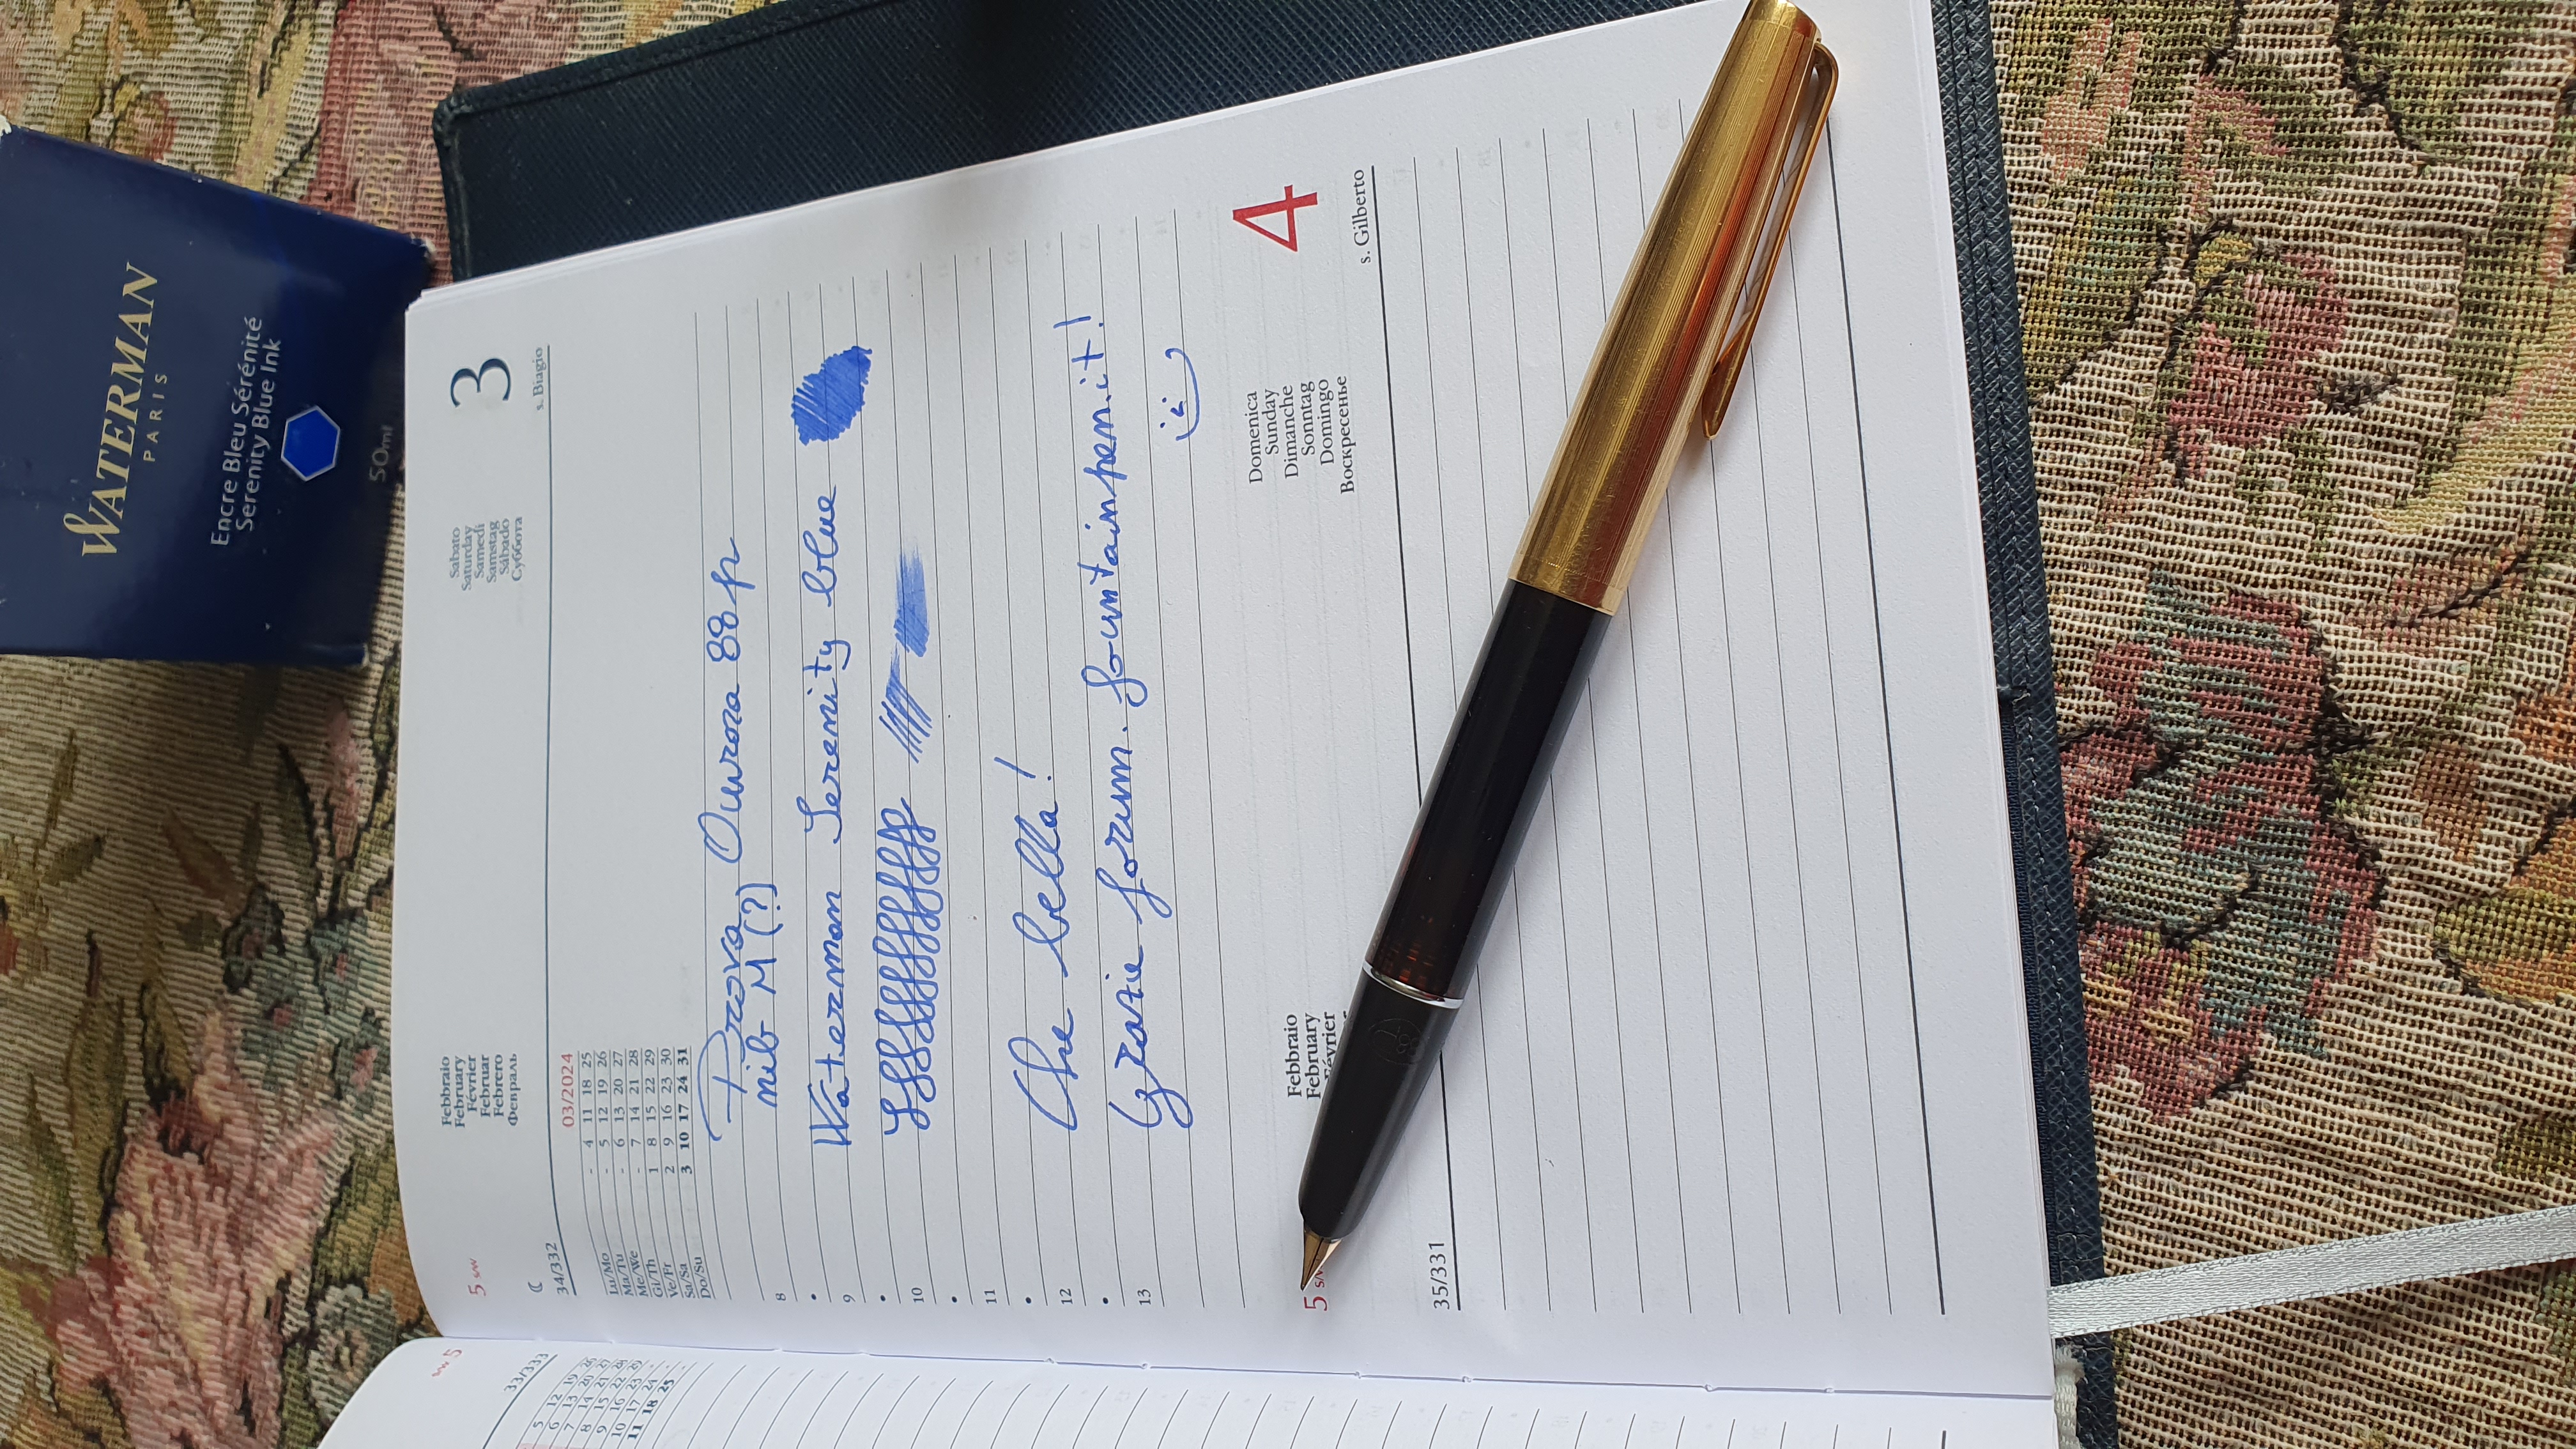 WATERMAN
PARIS
Encre Bleu Sérénité
Serenity Blue Ink
50ml
5 s/w
Febbraio
February
Février
Februar
Febrero
Февраль
Sabato
Saturday
Samedi
Samstag
Sábado
Суббота
3
34/332
s. Biagio
03/2024
Lu/Mo - 4 11 18 25
Ma/Tu - 5 12 19 26
Me/We - 6 13 20 27
Gi/Th - 7 14 21 28
Ve/Fr 1 8 15 22 29
Sa/Sa 2 9 16 23 30
Do/Su 3 10 17 24 31
Prova Aurora 88p
nib M (?)
8
Waterman Serenity blue
9
10
11
Che bella!
12
Grazie forum.fountainpen.it!
13
5 s/
Febbraio
February
Février
Domenica
Sunday
Dimanche
Sonntag
Domingo
Воскресенье
4
35/331
s. Gilberto
88
33/333
5 12
6 13
7 14
8 15
9 16
10 17
11 18 25